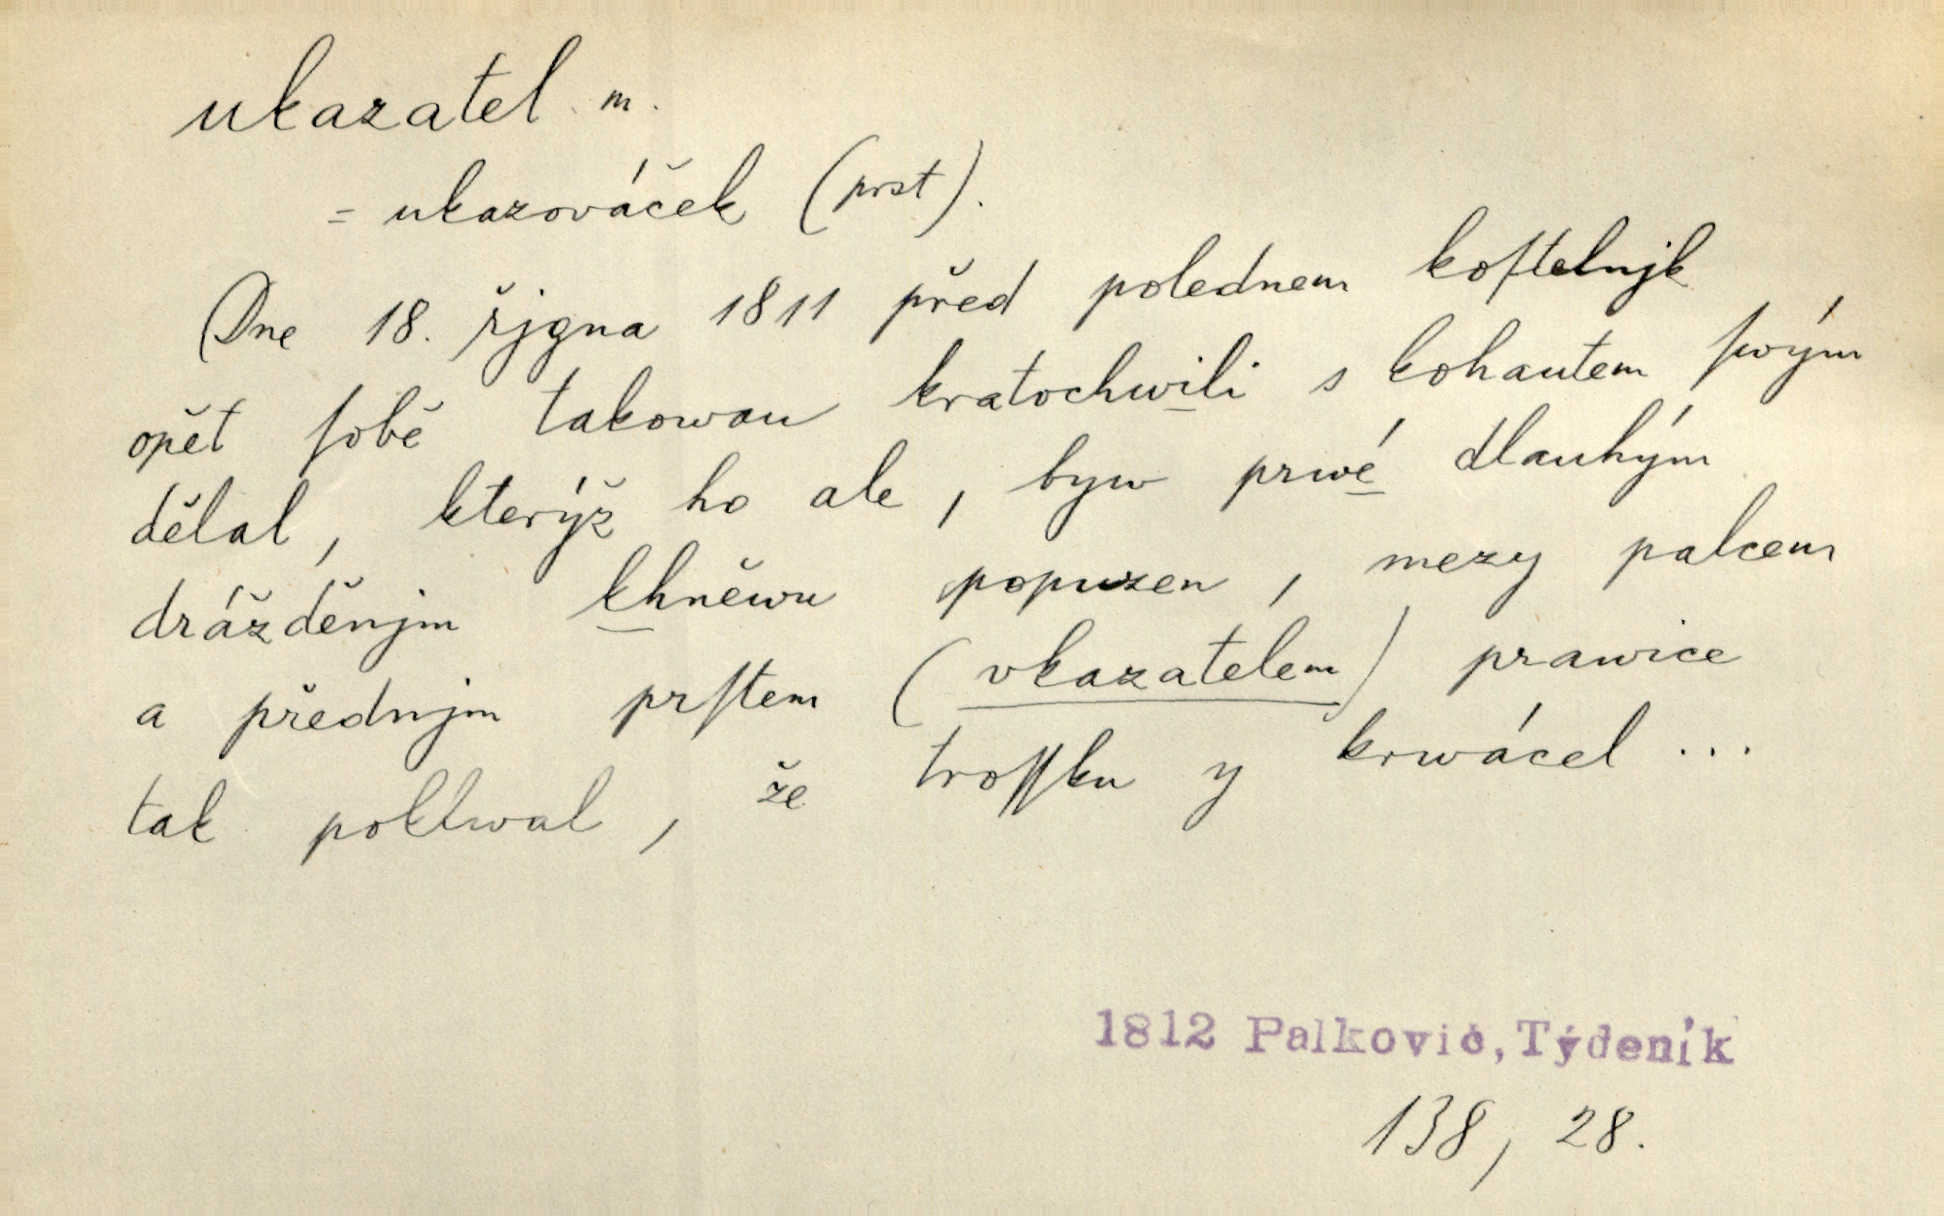 ukazatel m.
= ukazováček (prst).
Dne 18. řjgna 1811 před polednem koſtelnjk
opět ſobě takowau kratochwili s kohautem ſwým
dělal, kterýž ho ale, byw prwé dlauhým
drážděnjm khněwu popuzen, mezy palcem
a přednjm prſtem (vkazatelem) prawice
tak poklwal, že troſſku y krwácel ...
1812 Palkovič, Týdeník
138, 28.